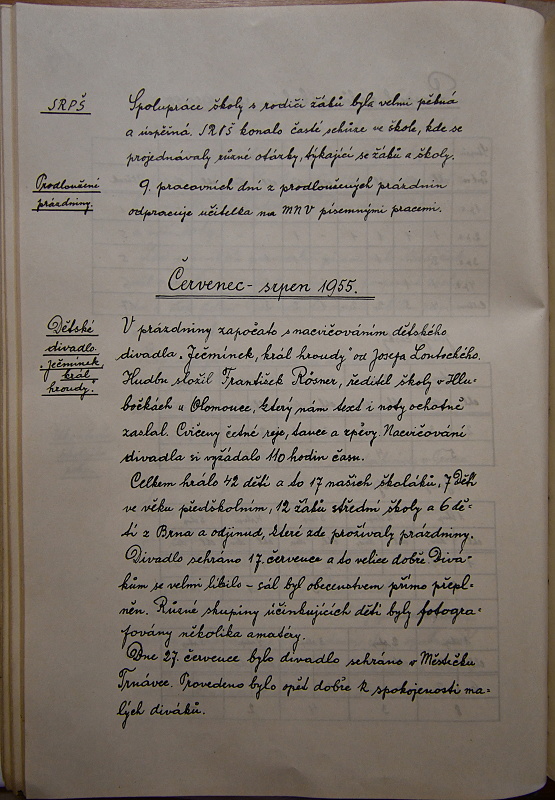 SRPŠ
Spolupráce školy s rodiči žáků byla velmi pěkná
a úspěšná. SRPŠ konalo časté schůze ve škole, kde se
projednávaly různé otázky, týkající se žáků a školy.
Prodloužení
prázdniny.
9. pracovních dní z prodloužených prázdnin
odpracuje učitelka na MNV písemnými pracemi.
Červenec - srpen 1955.
Dětské
divadlo
„Ječmínek,
král
hroudy."
V prázdniny započato s nacvičováním dětského
divadla „Ječmínek, král hroudy" od Josefa
Hudbu složil František Rösner, ředitel školy v Hlu-
bočkách u Olomouce, který nám text i noty ochotně
zaslal. Cvičeny četné reje, tance a zpěvy. Nacvičování
divadla si vyžádalo 110 hodin času.
Celkem hrálo 42 dětí a to 17 našich školáků, 7 dětí
ve věku předškolním, 12 žáků střední školy a 6 dě-
tí z Brna a odjinud, které zde prožívaly prázdniny.
Divadlo sehráno 17. července a to velice dobře. Divá-
kům se velmi líbilo - sál byl obecenstvem přímo přepl-
něn. Různé skupiny účinkujících dětí byly fotogra-
fovány několika amatéry.
Dne 27. července bylo divadlo sehráno v Městečku
Trnávce. Provedeno bylo opět dobře k spokojenosti ma-
lých diváků.